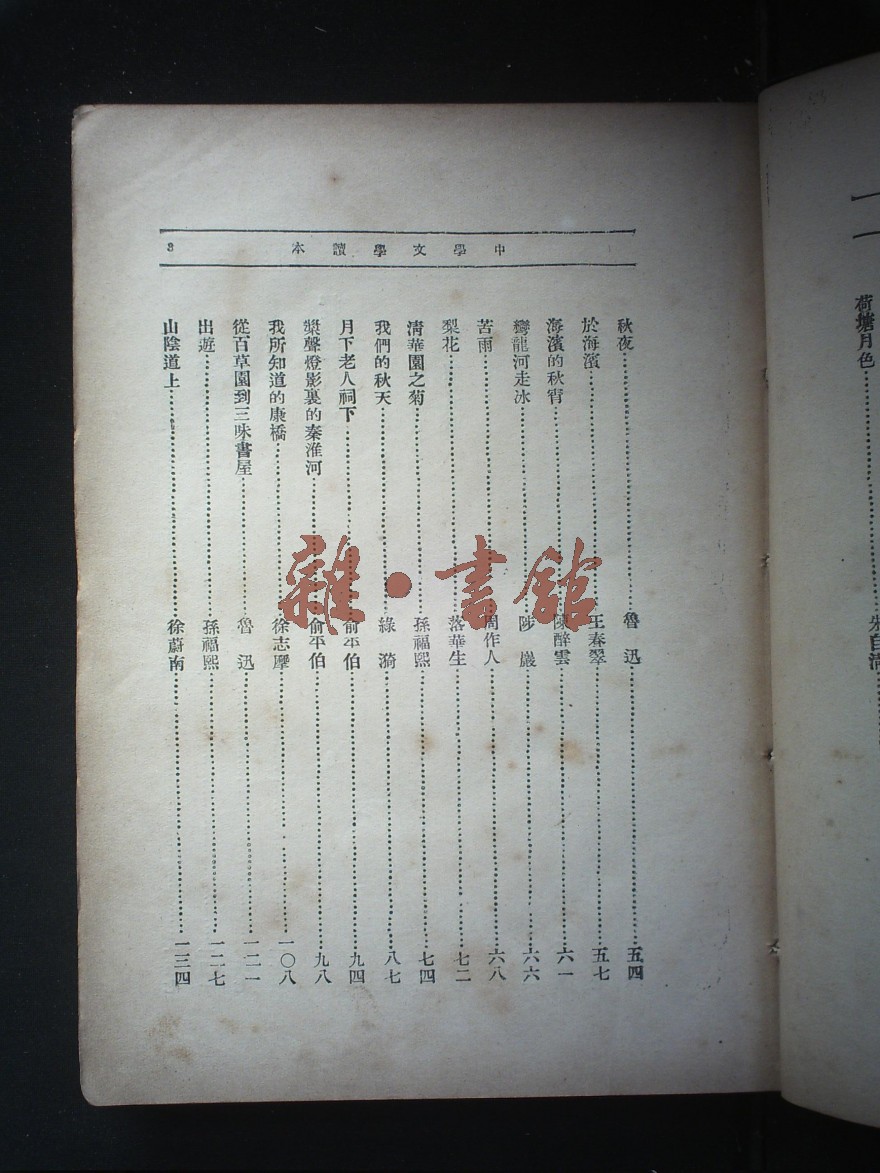 中學文學讀本 3
荷塘月色……朱自清
秋夜……魯迅……五四
於海濱……王春翠……五七
海濱的秋宵……陳醉雲……六一
灣龍河走冰……陟巖……六六
苦雨……周作人……六八
梨花……落華生……七二
清華園之菊……孫福熙……七四
我們的秋天……綠漪……八七
月下老人祠下……俞平伯……九四
槳聲燈影裏的秦淮河……俞平伯……九八
我所知道的康橋……徐志摩……一〇八
從百草園到三味書屋……魯迅……一二一
出遊……孫福熙……一二七
山陰道上……徐蔚南……一三四
雜·書館